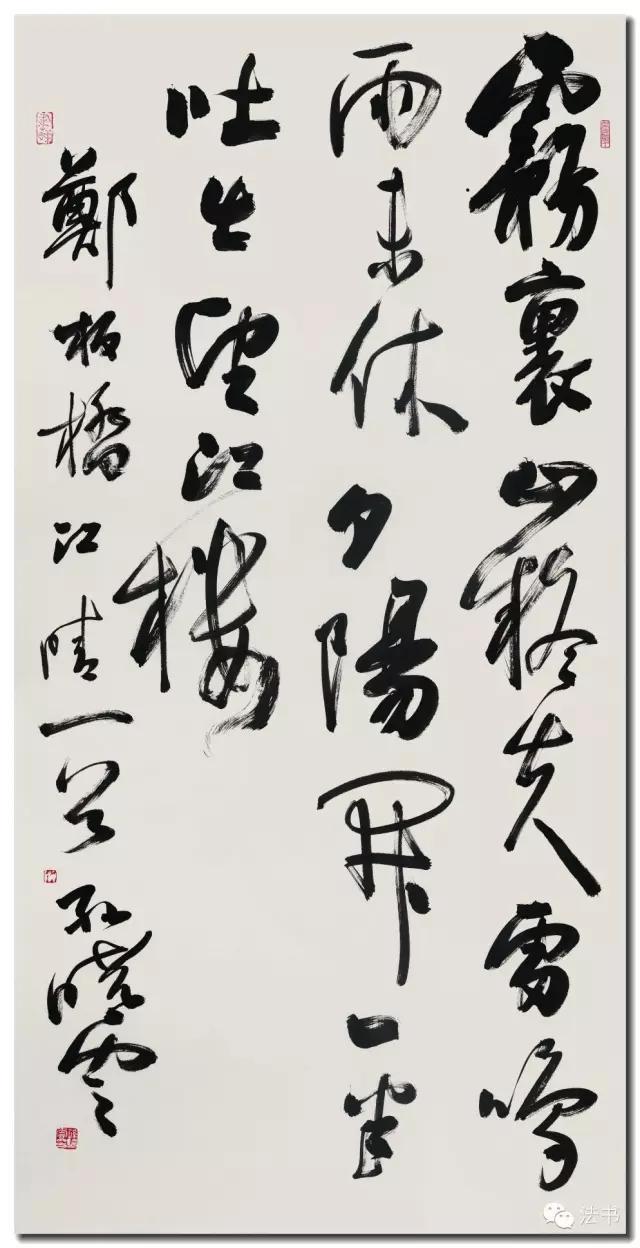 霧裏山疑失雷鳴
雨未休夕陽開一半
吐出望江樓
鄭板橋江晴一首孫曉雲
法书